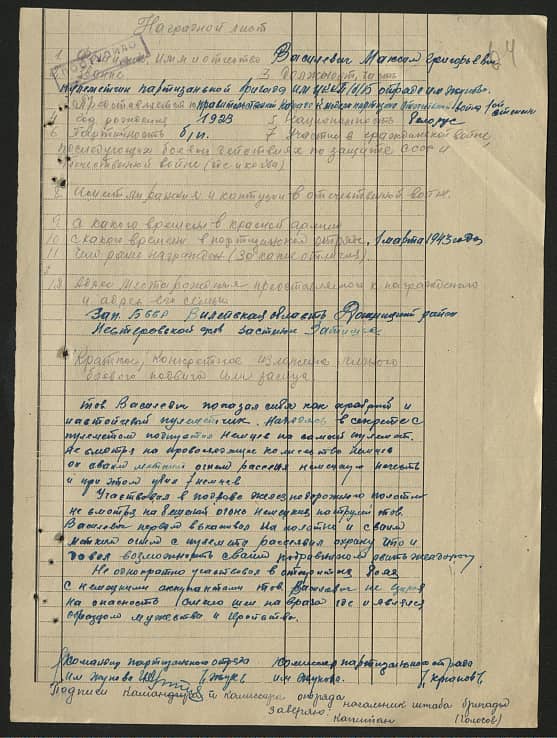 Наградной лист
поступило
64
1. Фамилия, имя и отчество Василевич Максим Григорьевич
2. Звание 3 Должность, часть
пулеметчик партизанской бригады им ЦК КП(б)Б отряда им Жукова.
4. Представляется к правительственной награде к медали партизану Отечественной войны 1ой степени
год рождения 1923 5 Национальность белорус
6 Партийность б/п. 7 Участие в гражданской войне,
последующих боевых действиях по защите СССР и
отечественной войне (где и когда)
8 Имеет ли ранения и контузии в отечественной войне.
9 С какого времени в красной армии
10 с какого времени в партизанском отряде, 1 марта 1943 года
11 Чем ранее награжден (за какие отличия).
и адрес его семьи
Зап. БССР Вилейская область район
Краткое, конкретное изложение личного
боевого подвига или заслуг
тов Василевич показал себя как храбрый и
настойчивый пулеметчик. Находясь в секрете с
пулеметом подпустил немцев на самый пулемет.
Не смотря на превосходящее количество немцев
он своим метким огнем рассеял немецкую нечесть
и при этом убил 7 немцев
Участвовал в подрыве железнодорожного полотна
не смотря на огонь немецких патрулей тов.
Василевич первым выскочил на полотно и своим
метким огнем с пулемета рассеял охрану что и
дало возможность своим подрывникам рвать жел дорогу
Не однократно участвовал в открытых боях
с немецкими оккупантами тов. Василевич не
на опасность смело шел на врага где и являлся
образцом мужества и геройства.
Командир партизанского отряда Комиссар партизанского отряда
им Жукова /Жук/ им Жукова.
Подписи командира и комиссара отряда
заверяю: начальник штаба бригады
капитан (Голосов)